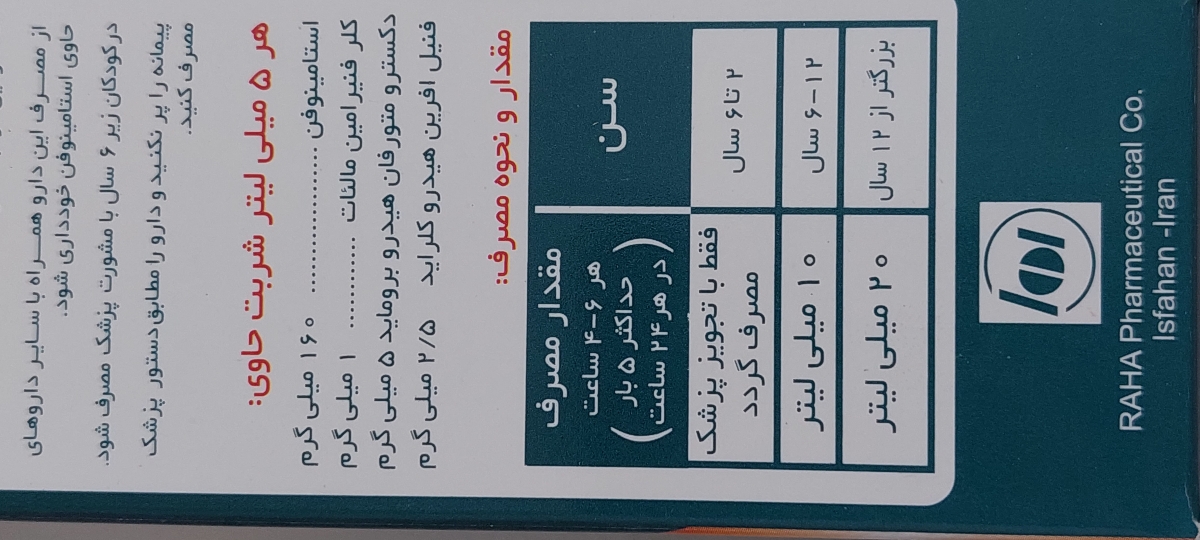 از مصرف این دارو همراه با سایر داروهای
حاوی استامینوفن خودداری شود.
درکودکان زیر ۶ سال با مشورت پزشک مصرف شود.
پیمانه را پر نکنید و دارو را مطابق دستور پزشک
مصرف کنید.
هر ۵ میلی لیتر شربت حاوی:
استامینوفن .................... ۱۶۰ میلی گرم
کلر فنیرامین مالئات ............ ۱ میلی گرم
دکسترو متورفان هیدرو بروماید ۵ میلی گرم
فنیل افرین هیدرو کلراید ۲/۵ میلی گرم
مقدار و نحوه مصرف:
سن
مقدار مصرف
هر ۶-۴ ساعت
(حداکثر ۵ بار
در هر ۲۴ ساعت)
۲ تا ۶ سال
فقط با تجویز پزشک
مصرف گردد
۶-۱۲ سال
۱۰ میلی لیتر
بزرگتر از ۱۲ سال
۲۰ میلی لیتر
RAHA Pharmaceutical Co.
Isfahan -Iran